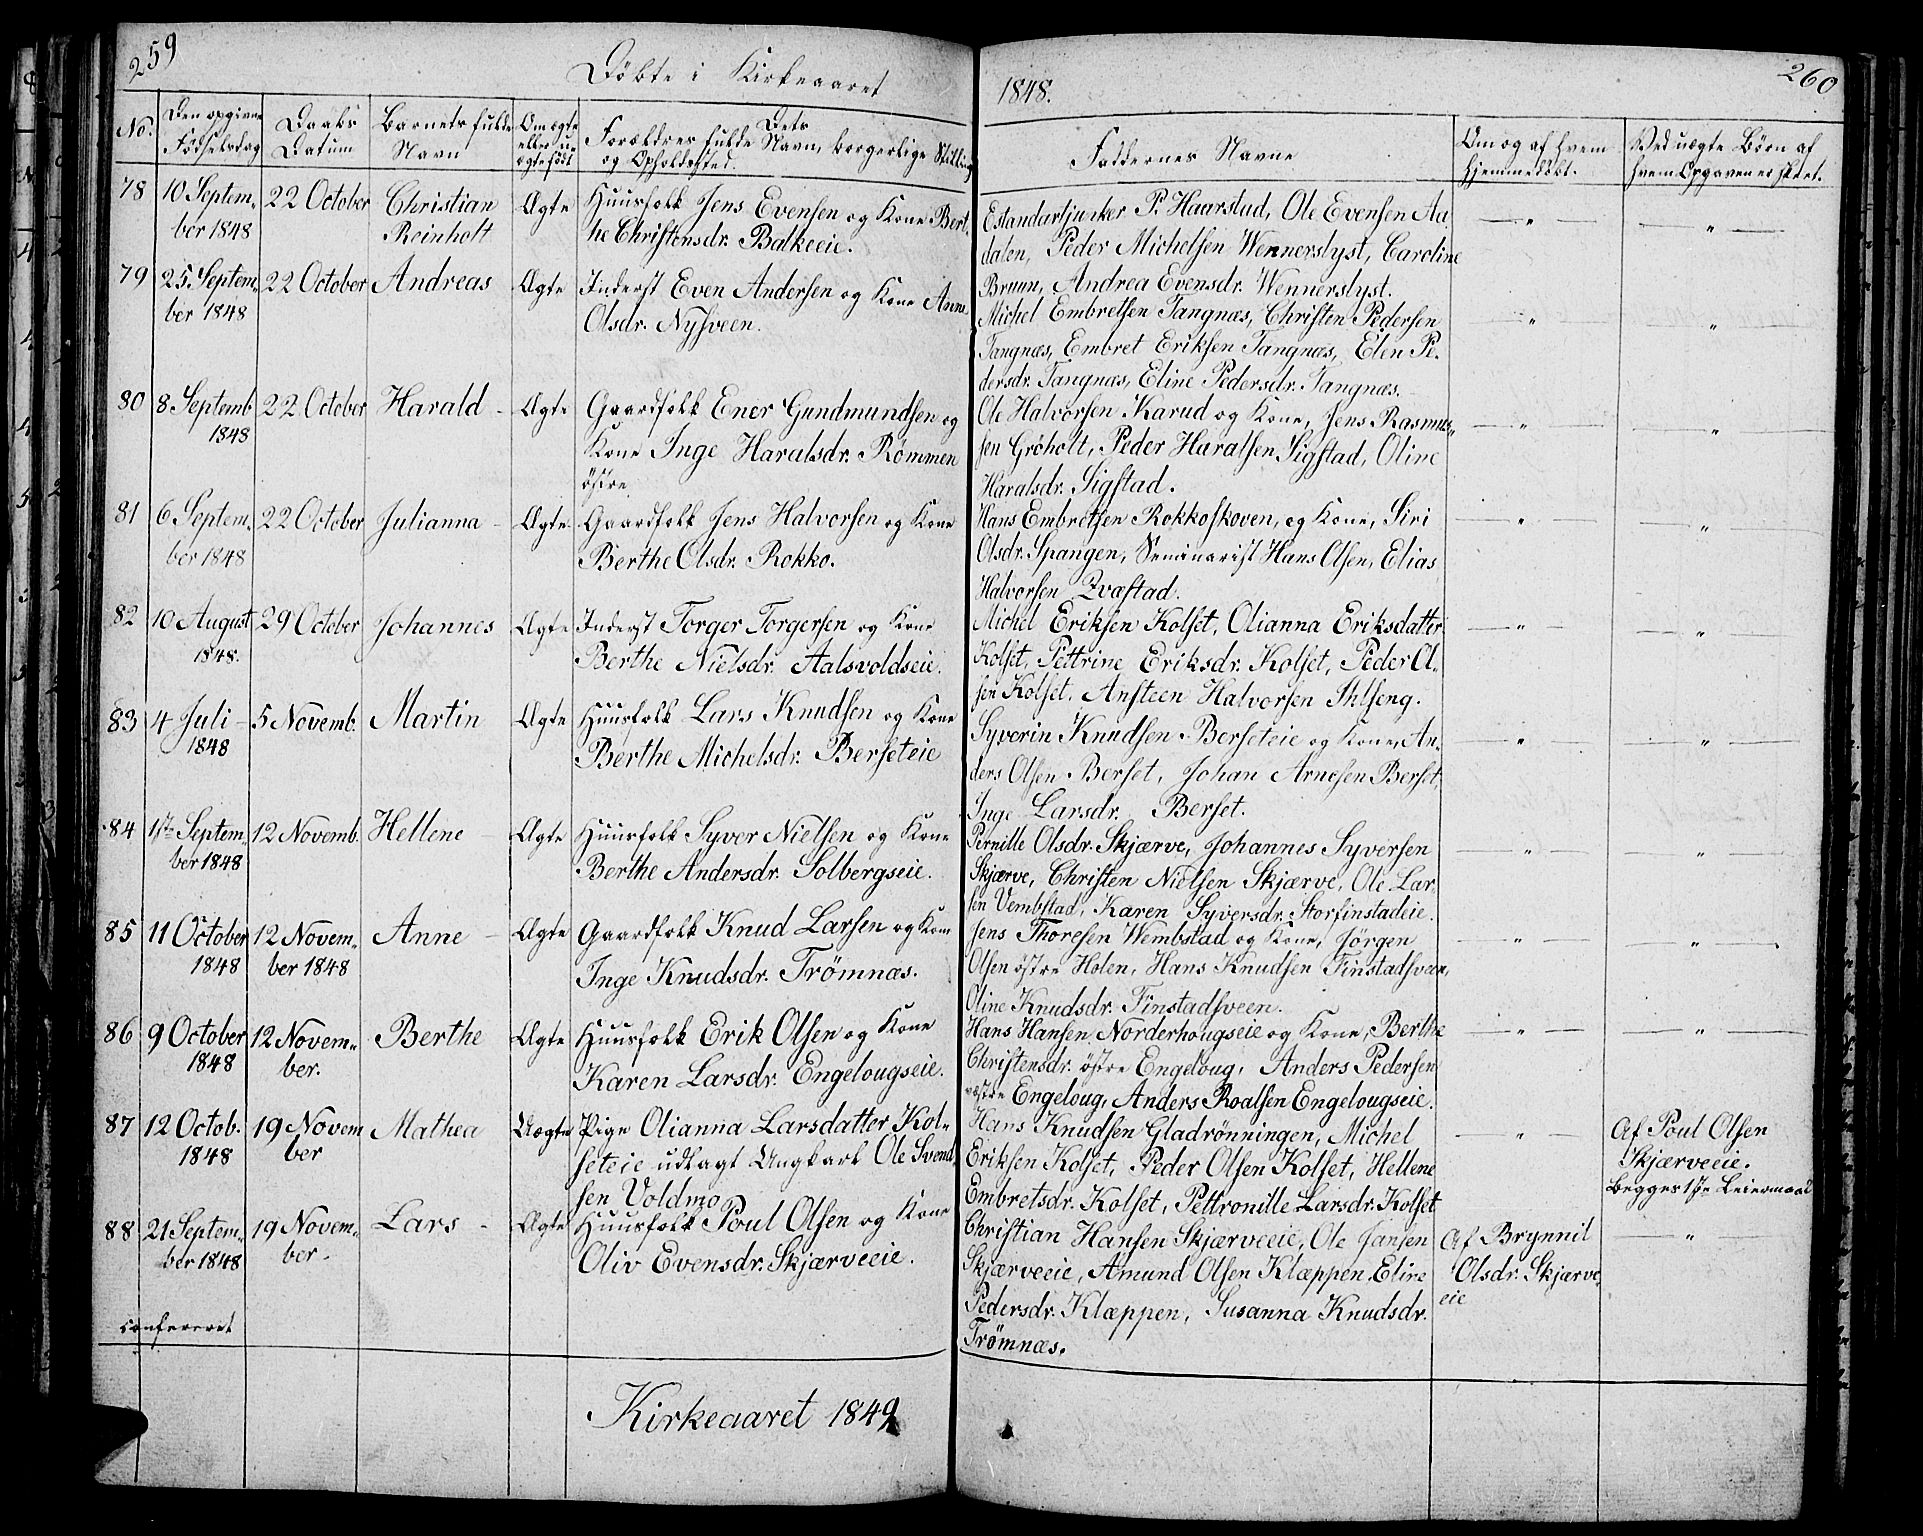 259
Döbte i Kirkeaaret
No.
Den opgivne Födselsdag
Daabs Datum
Barnets fulde Navn
Om ægte eller uægte født
Dets Forældres fulde Navn, borgerlige Stilling og Opholdssted.
78
10 Septem-
ber 1848
22 October
Christian
Reinholt
Ægte
Huusfolk Jens Evensen og Kone Bert-
he Christensdr. Balkeeie.
79
25 Septem-
ber 1848
22 October
Andreas
Ægte
Inderst Even Andersen og Kone Anne
Olsdr. Nysveen.
80
8 Septemb.
1848
22 October
Harald -
Ægte
Gaardfolk Ener Gundmundsen og
Kone Inge Haralsdr. Rømmen
östre
81
6 Septem-
ber 1848
22 October
Julianna -
Ægte
Gaardfolk Jens Halvorsen og Kone
Berthe Olsdr. Rokko.
82
10 August
1848.
29 October
Johannes
Ægte
Inderst Torger Torgersen og Kone
Berthe Nielsdr. Aalsvoldseie.
83
4 Juli -
1848
5 Novemb.
Martin
Ægte
Huusfolk Lars Knudsen og Kone
Berthe Michelsdr. Berseteie
84
1ste Septem-
ber 1848
12 Novemb.
Hellene -
Ægte
Huusfolk Syver Nielsen og Kone
Berthe Andersdr. Solbergseie.
85
11 October
1848
12 Novem-
ber 1848
Anne -
Ægte
Gaardfolk Knud Larsen og Kone
Inge Knudsdr. Trömnæs.
86
9 October
1848
12 Novem-
ber.
Berthe
Ægte
Huusfolk Erik Olsen og Kone
Karen Larsdr. Engelougseie.
87
12 Octob.
1848
19 Novem
ber
Mathea
Uægte
Pige Olianna Larsdatter Kol-
seteie udlagt Ungkarl Ole Svend-
sen Voldmo
88
21 Septem-
ber 1848
19 Novem-
ber.
Lars -
Ægte
Huusfolk Poul Olsen og Kone
Oliv Evensdr. Skjærveeie.
confereret
Kirkeaaret 1849
1848.
260
Faddernes Navne
Om og af hvem hjemmedöbt.
Ved uægte Börn af hvem Opgaven er skeet.
Estandartjunker P. Haarstad, Ole Evensen Aa
dalen, Peder Michelsen Wennerslyst, Caroline
Bruun, Andrea Evensdr. Wennerslyst.
Michel Embretsen Tangnæs, Christen Pedersen
Tangnæs, Embret Eriksen Tangnæs, Elen Pe-
dersdr. Tangnæs, Eline Pedersdr. Tangnæs.
Ole Halvorsen Karud og Kone, Jens Rasmus-
sen Gröholt, Peder Haralsen Sigstad, Oline
Haralsdr. Sigstad.
Hans Embretsen Rokkoskoven, og Kone, Siri
Olsdr. Spangen, Seminarist Hans Olsen, Elias
Halvorsen Zvæstad.
Michel Eriksen Kolset, Olianna Eriksdatter
Kolset, Pettrine Eriksdr. Kolset, Peder Ol-
sen Kolset, Ansteen Halvorsen Ihlseng.
Syverin Knudsen Berseteie og Kone, An-
ders Olsen Berset, Johan Arnesen Berset,
Inge Larsdr. Berset.
Pernille Olsdr. Skjærve, Johannes Syversen
Skjærve, Christen Nielsen Skjærve, Ole Lar
sen Vembstad, Karen Syversdr. Storfinstadeie.
Jens Thoresen Wembstad og Kone, Jörgen
Olsen östre Holen, Hans Knudsen Finstadsveen,
Oline Knudsdr. Finstadsveen.
Hans Hansen Norderhougseie og Kone, Berthe
Christensdr. östre Engeloug, Anders Pedersen
vestre Engeloug, Anders Roalsen Engelougseie.
Hans Knudsen Gladrönningen, Michel
Eriksen Kolset, Peder Olsen Kolset, Hellene
Embretsdr. Kolset, Pettronille Larsdr. Kolset
Af Poul Olsen
Skjærveeie.
begges 1ste Leiermaal
Christian Hansen Skjærveeie, Ole Jansen
Skjærveeie, Amund Olsen Klæppen, Eline
Pedersdr. Klæppen, Susanna Knudsdr.
Trömnæs.
Af Brynnil
Olsdr. Skjærve
eie